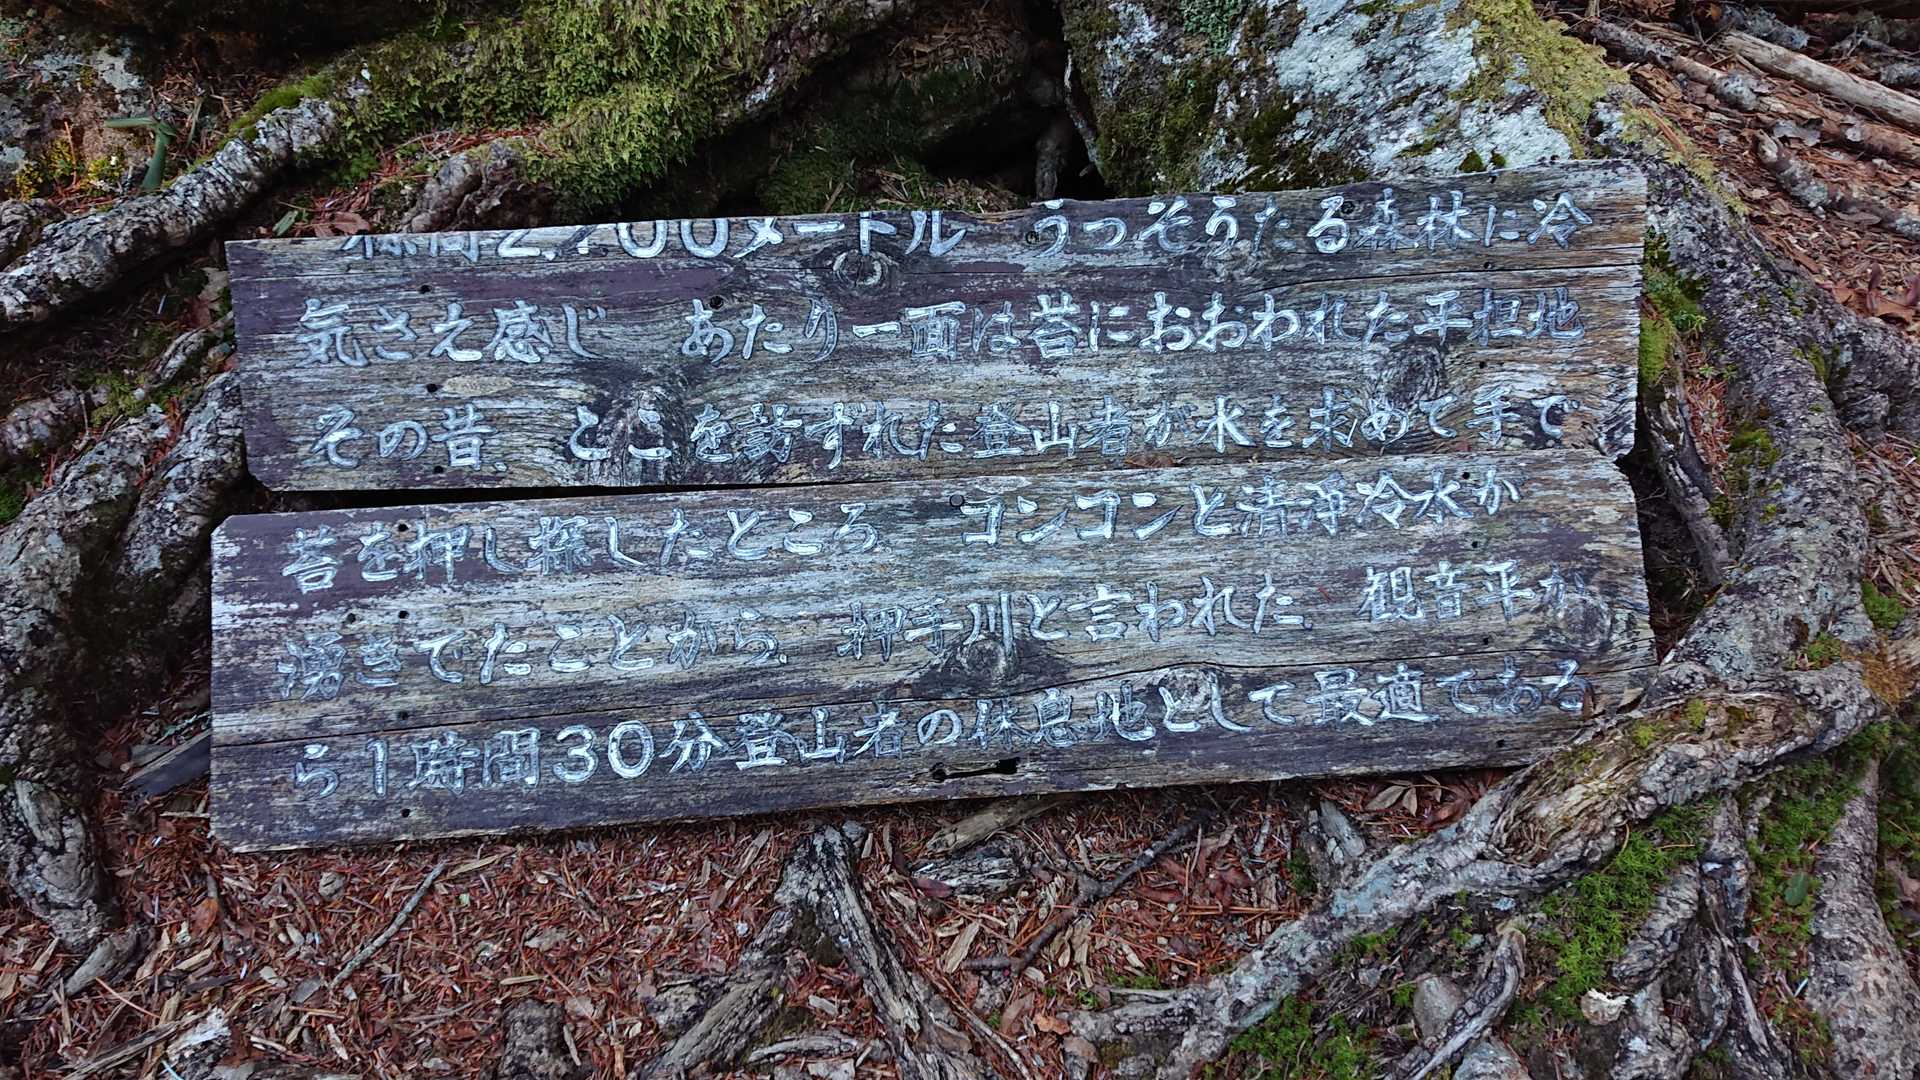 標高2,100メートル　うっそうたる森林に冷
気さえ感じ　あたり一面は苔におおわれた平担地
その昔、ここを訪ずれた登山者が水を求めて手で
苔を押し探したところ、コンコンと清浄冷水が
湧きでたことから、押手川と言われた、観音平か
ら1時間30分登山者の休息地として最適である